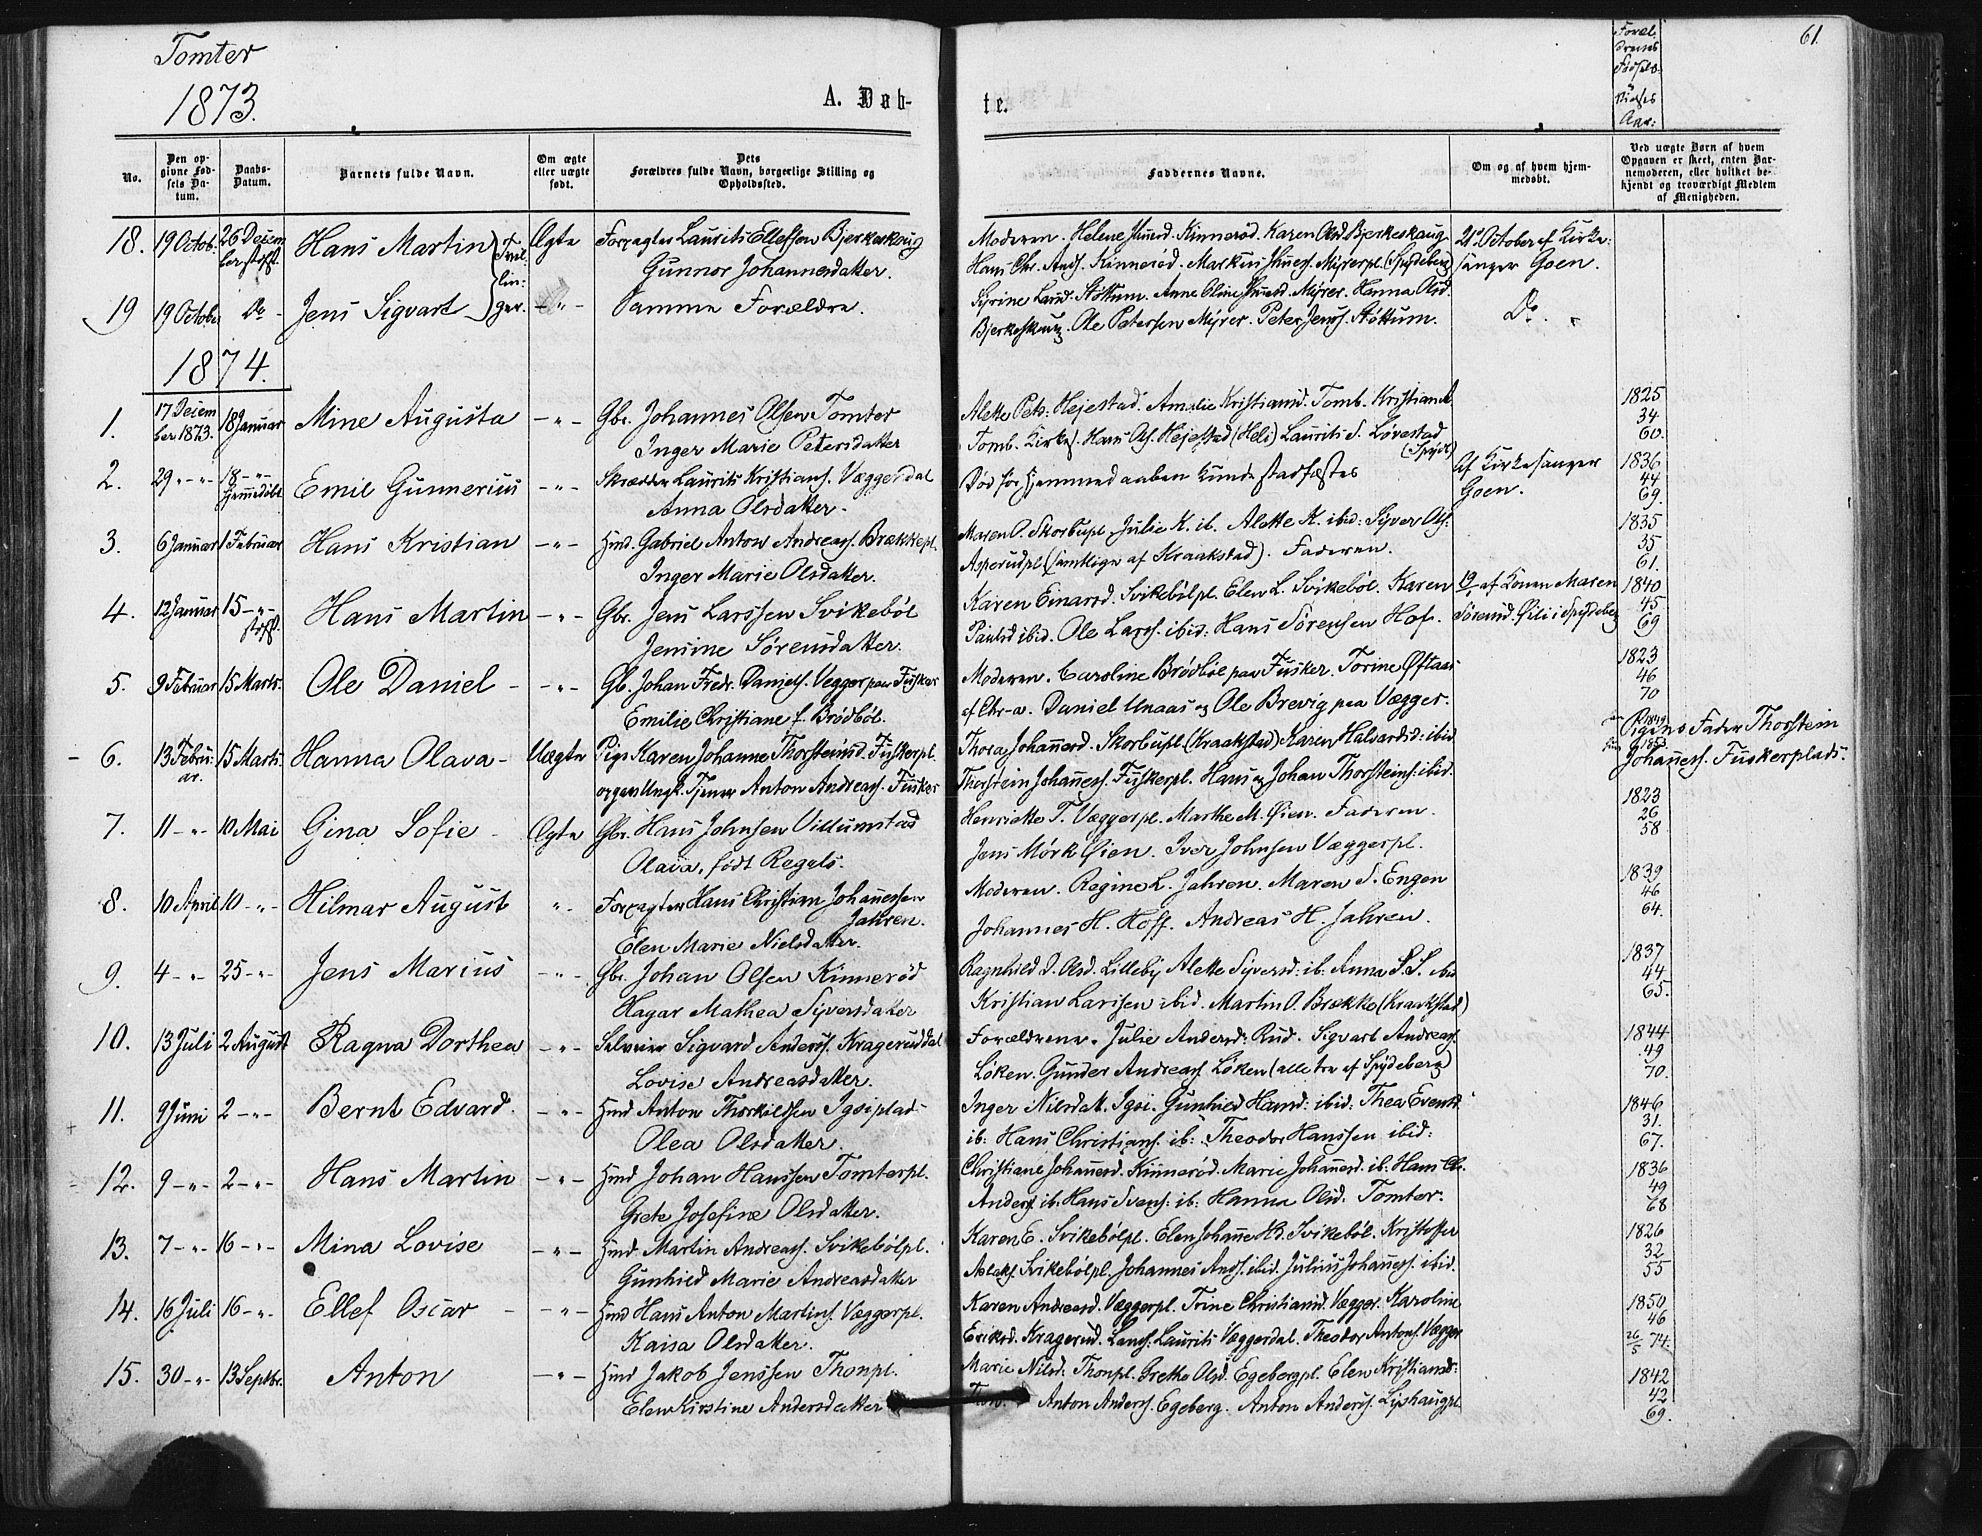 Tomter
1873.
A. Døb-
te.
61.
Foræl
drenes
Fødsels-
Aar:
No.
Den op-
givne Fød-
sels Da-
tum.
Daabs-
Datum.
Barnets fulde Navn.
Om ægte
eller uægte
født.
Dets
Forældres fulde Navn, borgerlige Stilling og
Opholdssted.
Faddernes Navne.
Om og af hvem hjem-
medøbt.
Ved uægte Børn af hvem
Opgaven er skeet, enten Bar-
nemoderen, eller hvilket be-
kjendt og troværdigt Medlem
af Menigheden.
18. 19 Octob. 26 Decem Hans Martin Tvil- Ægte Forpagter Laurits Ellefsen Bjerkeskaug Moderen. Helene Kinnerød. Karen Olsd Bjerkeskaug 21 October af Kirke-
ber stadf. lin- Gunnor Johannesdatter. Hans Chr. Ands. Kinnerød. Markus Myrerpl. (Spydeberg) sanger Goen.
19 19 October Do Jens Sigvart ger. -"- Samme Forældre. Syrine Støttum. Anne Oline Myrer. Hanna Olsd.
Bjerkeskaug. Ole Petersen Myrer. Peter Jens. Støttum. Do.
1874.
1. 17 Decem 18 Januar Mine Augusta -"- Gbr. Johannes Olsen Tomter Alette Pets. Hejestad. Amalie Kristiansd. Tomb. Kristian A. 1825
ber 1873. Inger Marie Petersdatter Tomb. Kirkes. Hans Hejestad (Heli) Laurits S. Løvestad 34
(Spydb) 60.
2. 29 -"- 18 -"- Emil Gunnerius -"- Skrædder Laurits Kristians. Væggerdal Død før Hjemmedaaben kunde stadfæstes Af Kirkesanger 1836
Hjemmedøbt Anna Olsdatter. Goen. 44
69.
3. 6 Januar 1 Februar Hans Kristian -"- Hmd. Gabriel Anton Andreass. Brækkepl. Maren O. Skorbupl. Julie K. ib. Alette K. ibid: Syver Ols. 1835
Inger Marie Olsdatter. Asperudpl (samtlige af Kraakstad). Faderen. 35
61.
4. 12 Januar 15 -"- Hans Martin -"- Gbr. Jens Larssen Svikebøl Karen Einarsd. Svikebølpl. Elen L. Svikebøl. Karen 19/1 af Konen Maren 1840
stadf. Jensine Sørensdatter. Paulsd ibid. Ole Larss. ibid: Hans Sørensen Hof. Sørensd. i Spydeberg 45
69
5. 9 Februar 15 Marts. Ole Daniel -"- Gb. Johan Fredr. Daniels. Vegger paa Fusker Moderen. Caroline Brødbøl paa Fusker. Torine Øftaas 1823
Emilie Christiane f. Brødbøl. af Chr-a. Daniel Unaas og Ole Brevig paa Vægger. 46
70
6. 13 Febru- 15 Marts. Hanna Olava Uægte Pige Karen Johanne Thorsteinsd. Fuskerpl. Thora Johannesd. Skorbupl. (Kraakstad) Karen Halvorsd: ibid Pigens Fader Thorstein
ar. og Ungk. Tjener Anton Andreass. Fusker Thorstein Johaness. Fuskerpl. Hans og Johan Thorsteins. ibid. Johaness. Fuskerplads.
7. 11 -"- 10 Mai Gina Sofie Ægte Gbr. Hans Johnsen Villumstad Henriette T. Væggerpl. Marthe M. Øien. Faderen. 1823
Olava, født Regels. Jens Mørk Øien. Iver Johnsen Væggerpl. 26
58
8. 10 April 10 -"- Hilmar August " Forpagter Hans Christian Johannessen Moderen. Regine L. Jahren. Maren S. Engen 1839
Jahren. 46
Elen Marie Nielsdatter. Johannes H. Hoff. Andreas H. Jahren. 64.
9. 4 -"- 25 -"- Jens Marius -"- Gbr. Johan Olsen Kinnerød Ragnhild D. Olsd. Lilleby Alette Syversd: ib. Anna S. S. ibid 1837
Hagar Mathea Syversdatter Kristian Larssen ibid. Martin O. Brække (Kraakstad) 44
65.
10. 13 Juli 2 August Ragna Dorthea -"- Selveier Sigvard Anders. Krageruddal Forældrene. Julie Andersd: Rud. Sigvart Andreass. 1844
Lovise Andreasdatter. Løken. Gunder Andreass. Løken (alle tre af Spydeberg) 49
70.
11. 9 Juni 2 -"- Bernt Edvard. -"- Hmd Anton Thorkildsen Igsiplad Inger Nilsdat. Igsi. Gunhild Hansd: ibid: Thea Evensd. 1846
Olea Olsdatter. ib: Hans Christians. ib: Theodor Hanssen ibid: 31.
67.
12. 9 -"- 2 -"- Hans Martin -"- Hmd Johan Hanssen Tomterpl. Christiane Johannesd. Kinnerød. Marie Johannesd. ib. Hans Chr. 1836
Grete Josefine Olsdatter. Anders. ib. Hans Svens. ib: Hanna Olsd. Tomter. 49
68
13. 7 -"- 16 -"- Mina Lovise -"- Hmd. Martin Andreass. Svikebølpl. Karen E. Svikebølpl. Elen Johanne H.d. Svikebøl. Kristoffer 1826
Gunhild Marie Andreasdatter Aslaks. Svikebølpl. Johannes Ands. ibid. Julius Johaness. ibid. 32
55
14. 16 Juli 16 -"- Ellef Oscar -"- Hmd Hans Anton Martins. Væggerpl. Karen Andreasd. Væggerpl. Trine Christiansd. Vægger. Karoline 1850
Kaisa Olsdatter. Eriksd. Kragerud. Lauritz Væggerdal. Theodor Antons. Vægger 46
26/5 74.
15. 30 -"- 13 Septbr. Anton -"- Hmd Jakob Jenssen Thonpl. Marie Nilsd. Thonpl. Grethe Olsd. Egebergpl. Elen Kristiansd: 1842
Elen Kirstine Andersdatter Anton Anderss. Egeberg. Anton Anderss. Lishaugpl. 42
69.